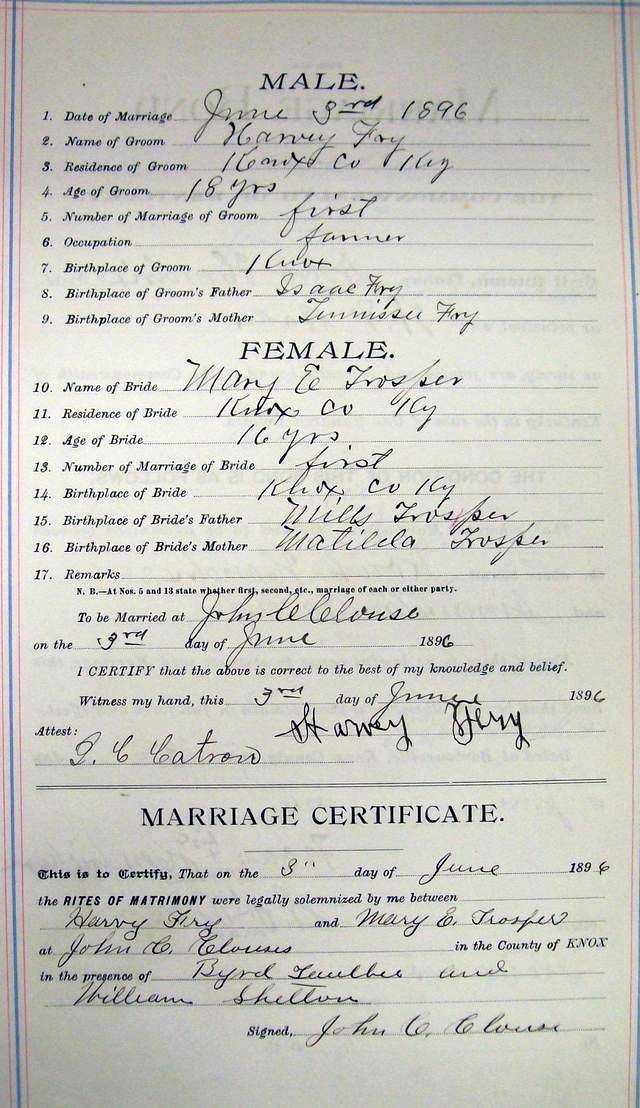 MALE.
1. Date of Marriage June 3rd 1896
2. Name of Groom Harvey Fry
3. Residence of Groom Knox Co Ky
4. Age of Groom 18 yrs
5. Number of Marriage of Groom first
6. Occupation farmer
7. Birthplace of Groom Knox
8. Birthplace of Groom's Father Isaac Fry
9. Birthplace of Groom's Mother Tennissee Fry
FEMALE.
10. Name of Bride Mary E Trosper
11. Residence of Bride Knox Co Ky
12. Age of Bride 16 yrs
13. Number of Marriage of Bride first
14. Birthplace of Bride Knox Co Ky
15. Birthplace of Bride's Father Mills Trosper
16. Birthplace of Bride's Mother Matilda Trosper
17. Remarks
N. B.—At Nos. 5 and 13 state whether first, second, etc., marriage of each or either party.
To be Married at John C Clouse
on the 3rd day of June 1896
I CERTIFY that the above is correct to the best of my knowledge and belief.
Witness my hand, this 3rd day of June 1896
Harvey Fry
Attest:
Catron
MARRIAGE CERTIFICATE.
This is to Certify, That on the 3" day of June 1896
the RITES OF MATRIMONY were legally solemnized by me between
Harvy Fry and Mary E. Trosper
at John C. Clouses in the County of KNOX
in the presence of Byrd Faulbee and
William Shelton
Signed, John C. Clouse